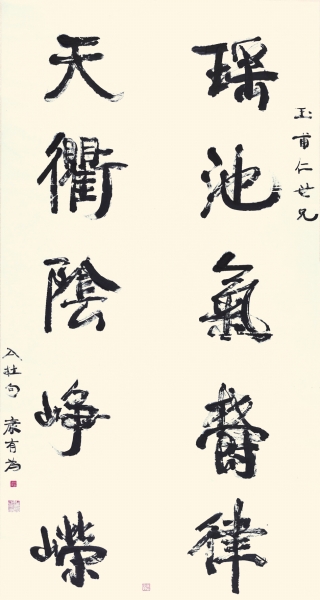 玉甫仁世兄
瑤池氣鬱律
天衢陰崢嶸
亼杜句 康有為